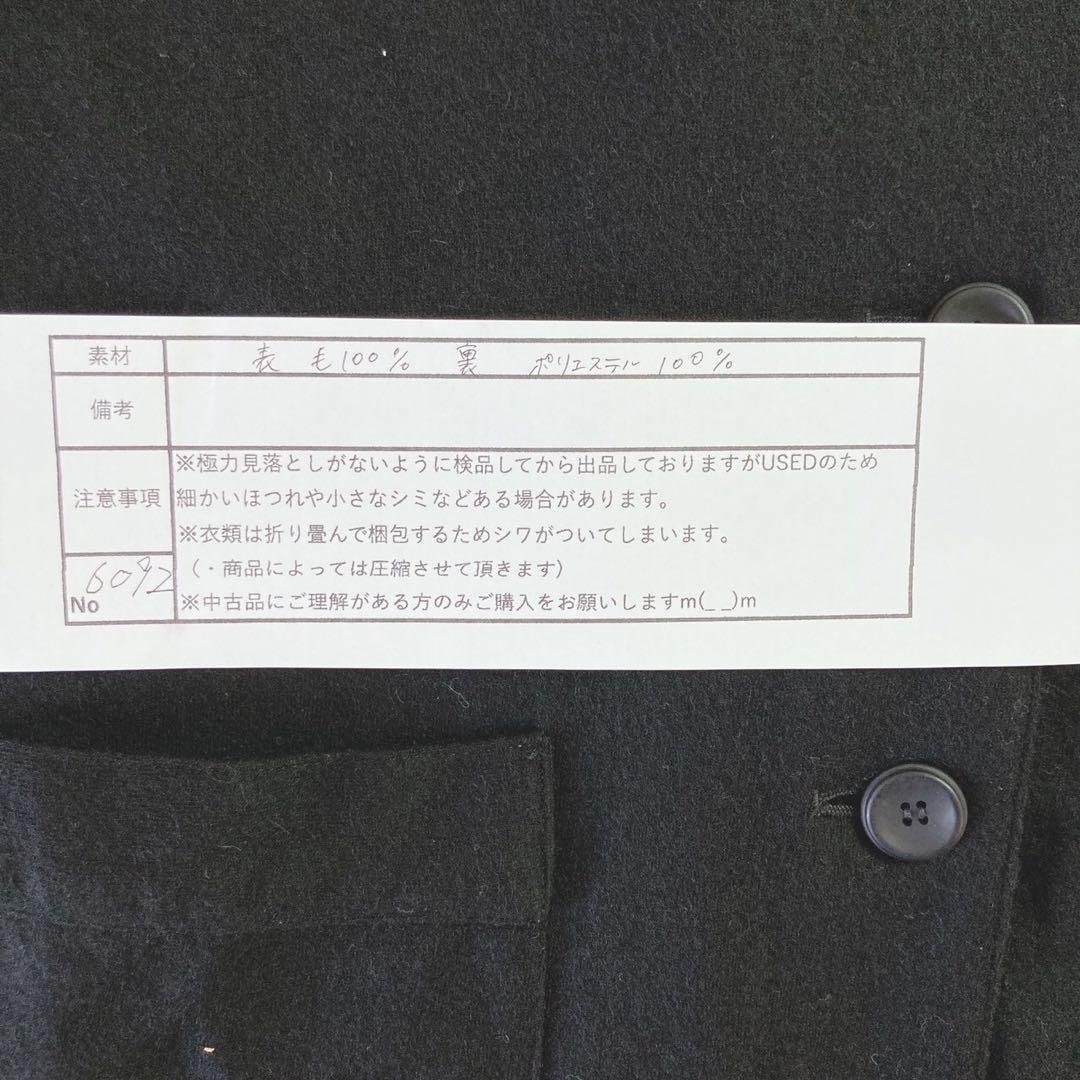 素材 表 毛100% 裏 ポリエステル 100%
備考
注意事項
※極力見落としがないように検品してから出品しておりますがUSEDのため
細かいほつれや小さなシミなどある場合があります。
※衣類は折り畳んで梱包するためシワがついてしまいます。
(・商品によっては圧縮させて頂きます)
※中古品にご理解がある方のみご購入をお願いしますm(_ _)m
No 6092